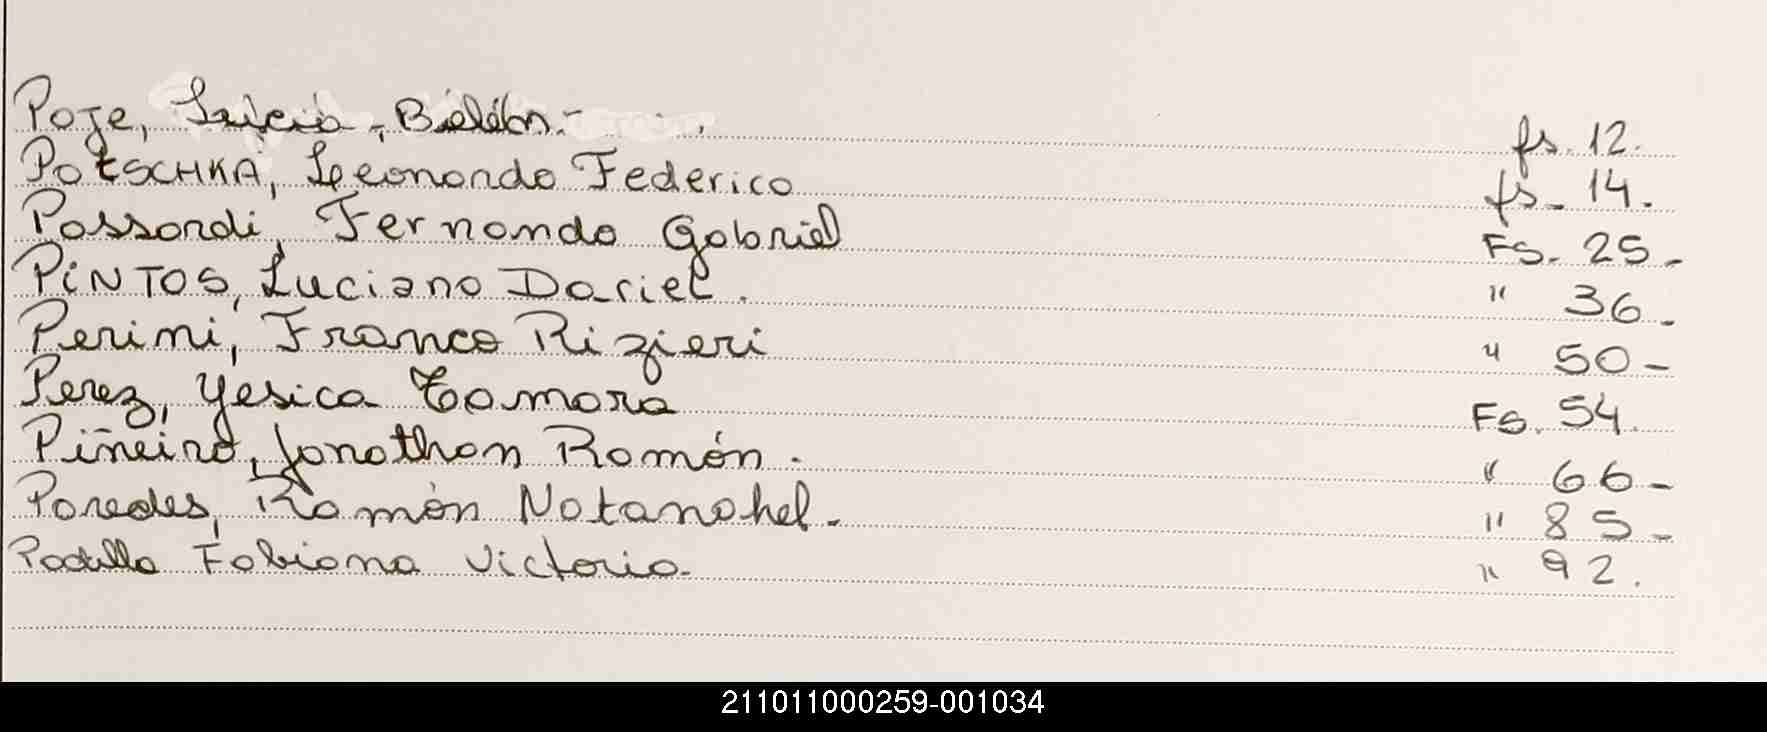 Poje, Leticia, Belén.- fs. 12.
PotSCHKA, Leonardo Federico fs_ 14.
Passardi, Fernando Gabriel Fs. 25_
PiNTOS, Luciano Dariel. " 36_
Perini, Franco Rizieri " 50_
Perez, Yesica Tamara Fs. 54.
Piñeiro, Jonathan Román. " 66_
Paredes, Ramón Natanahel. " 85_
Padilla Fabiana Victoria. " 92.
211011000259-001034